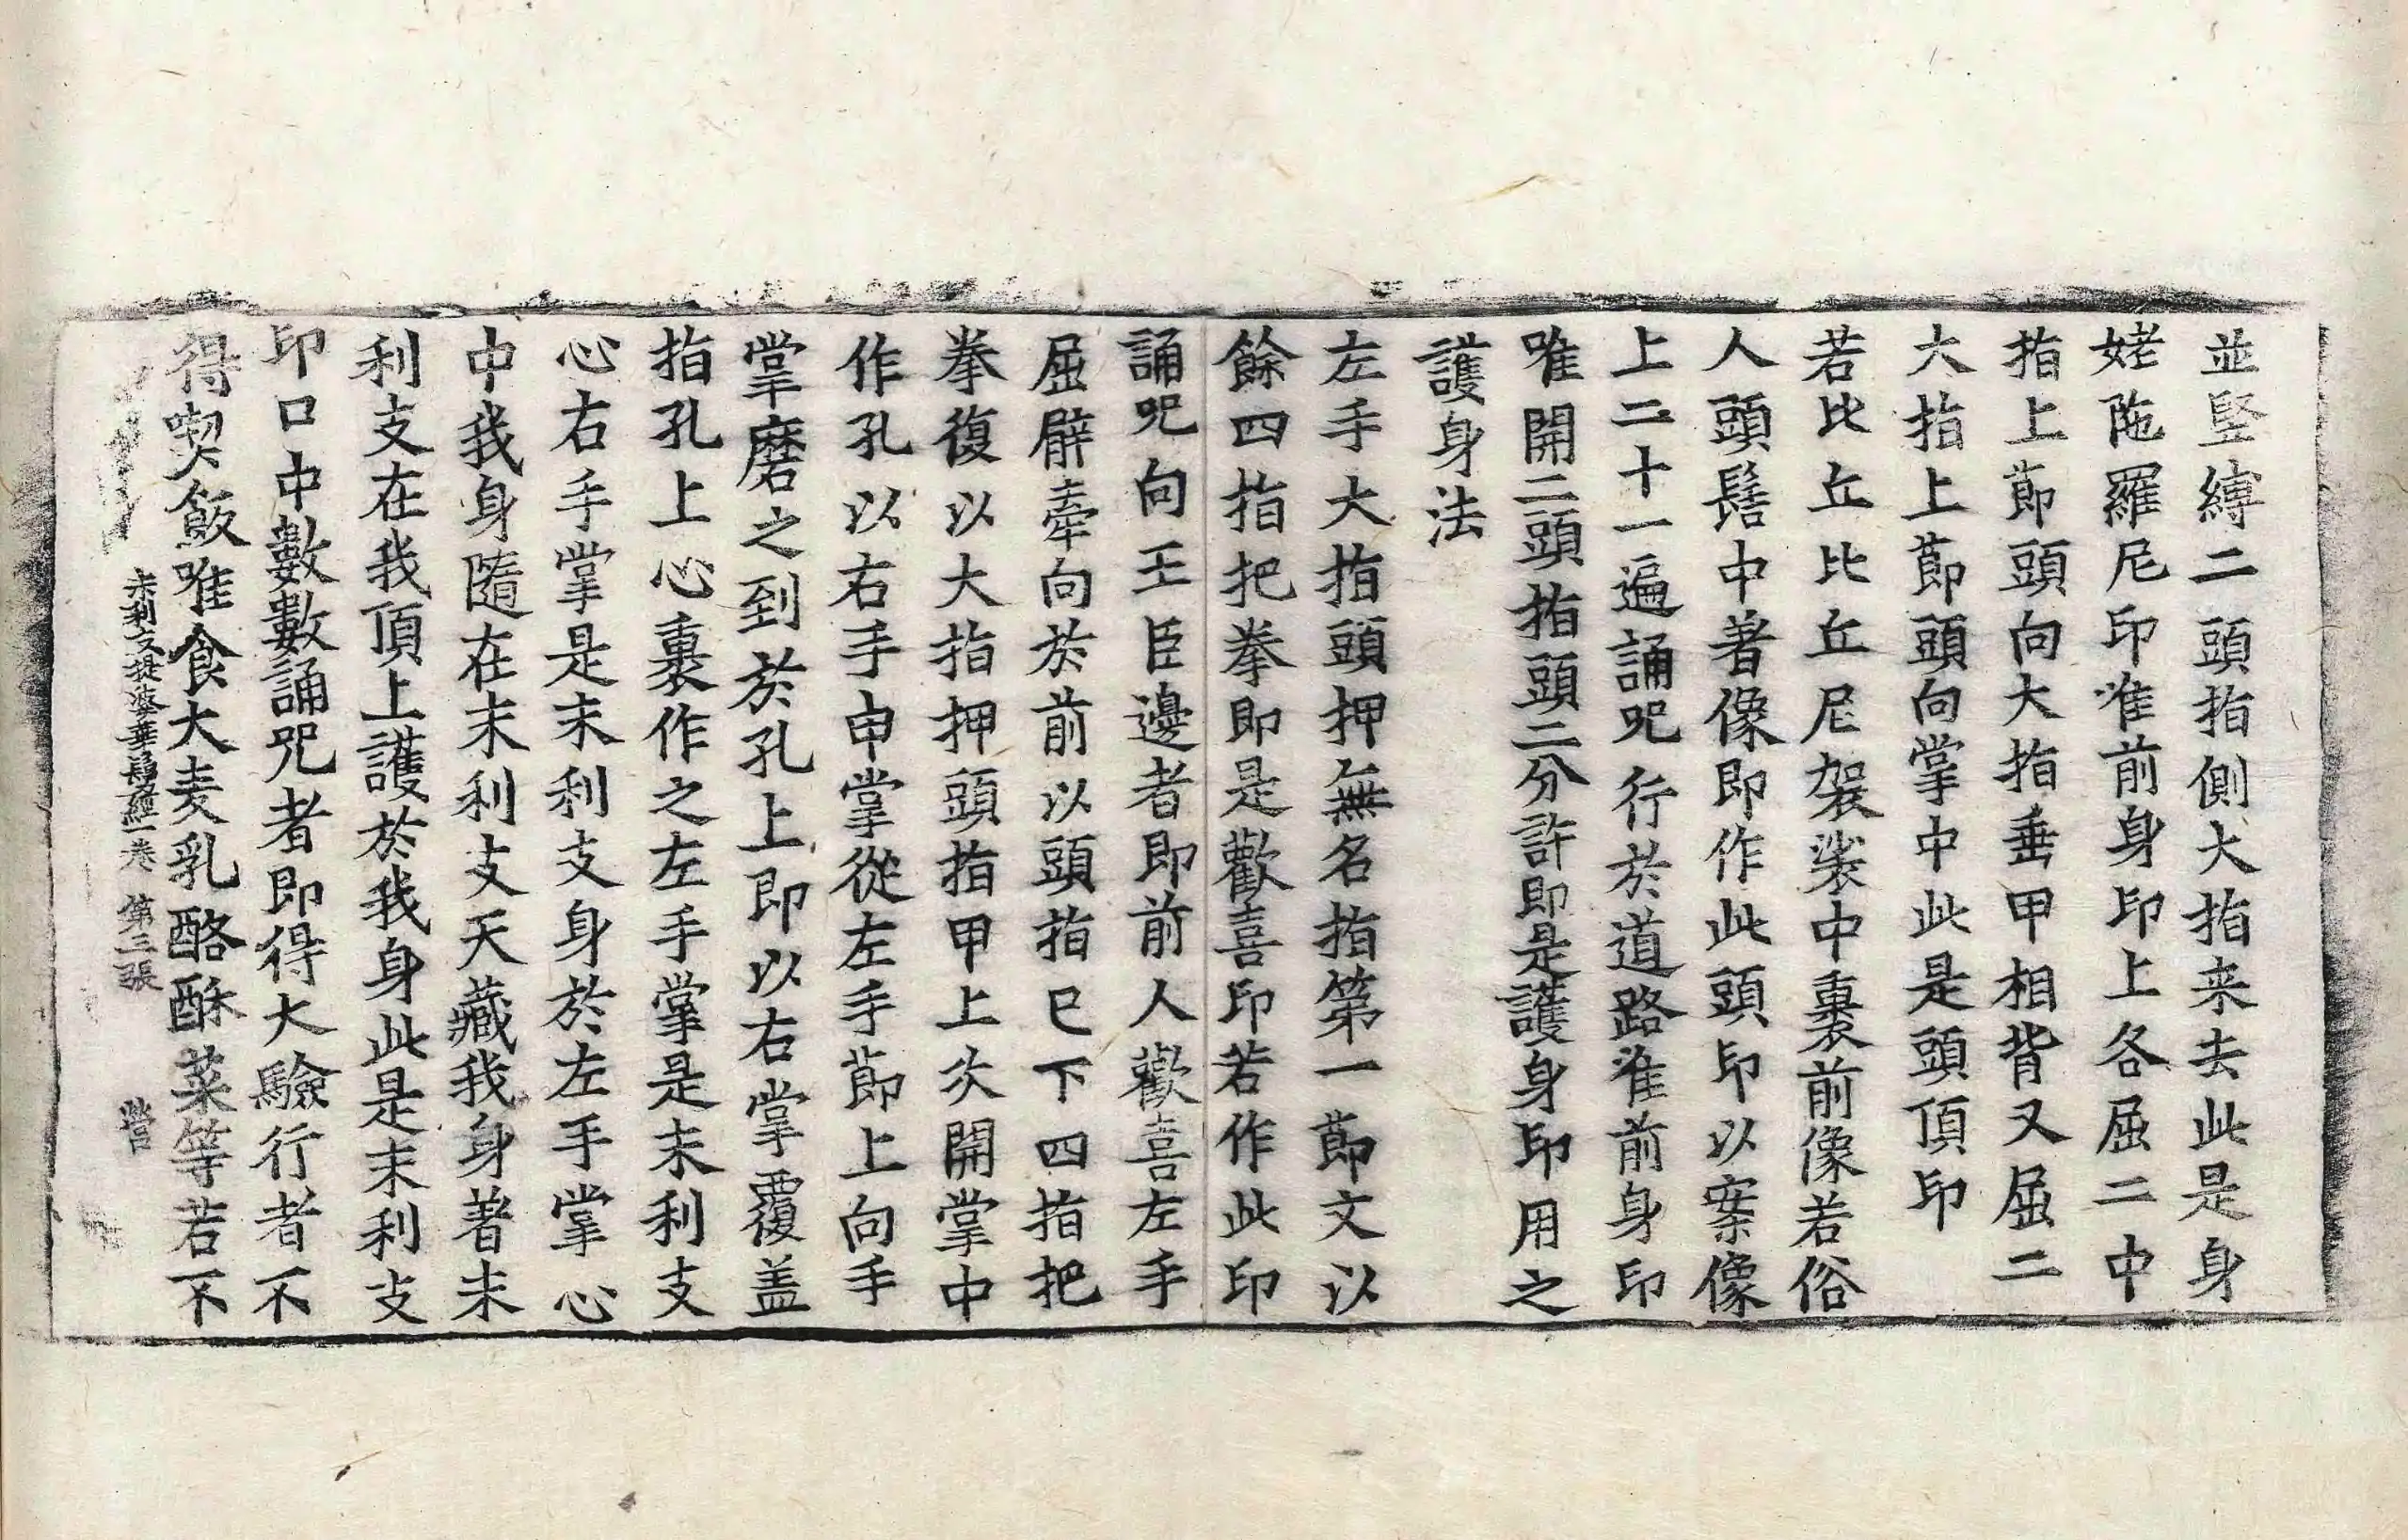 並竪縛二頭指側大指来去此是身
姥陁羅尼印准前身印上各屈二中
指上莭頭向大指垂甲相背又屈二
大指上莭頭向掌中此是頭頂印
若比丘比丘尼袈裟中裹前像若俗
人頭髻中著像即作此頭印以案像
上二十一遍誦呪行於道路准前身印
唯開二頭指頭二分許即是護身印用之
護身法
左手大指頭押無名指第一莭文以
餘四指把拳即是歡喜印若作此印
誦呪向王臣邊者即前人歡喜左手
屈臂牽向於前以頭指已下四指把
拳復以大指押頭指甲上次開掌中
作孔以右手申掌從左手莭上向手
掌磨之到於孔上即以右掌覆盖
指孔上心裏作之左手掌是末利支
心右手掌是末利支身於左手掌心
中我身隨在末利支天藏我身著末
利支在我頂上護於我身此是末利支
印口中數數誦呪者即得大驗行者不
得喫飯唯食大麦乳酪酥菜等若不
末利支提婆華鬘經一卷 第三張 營